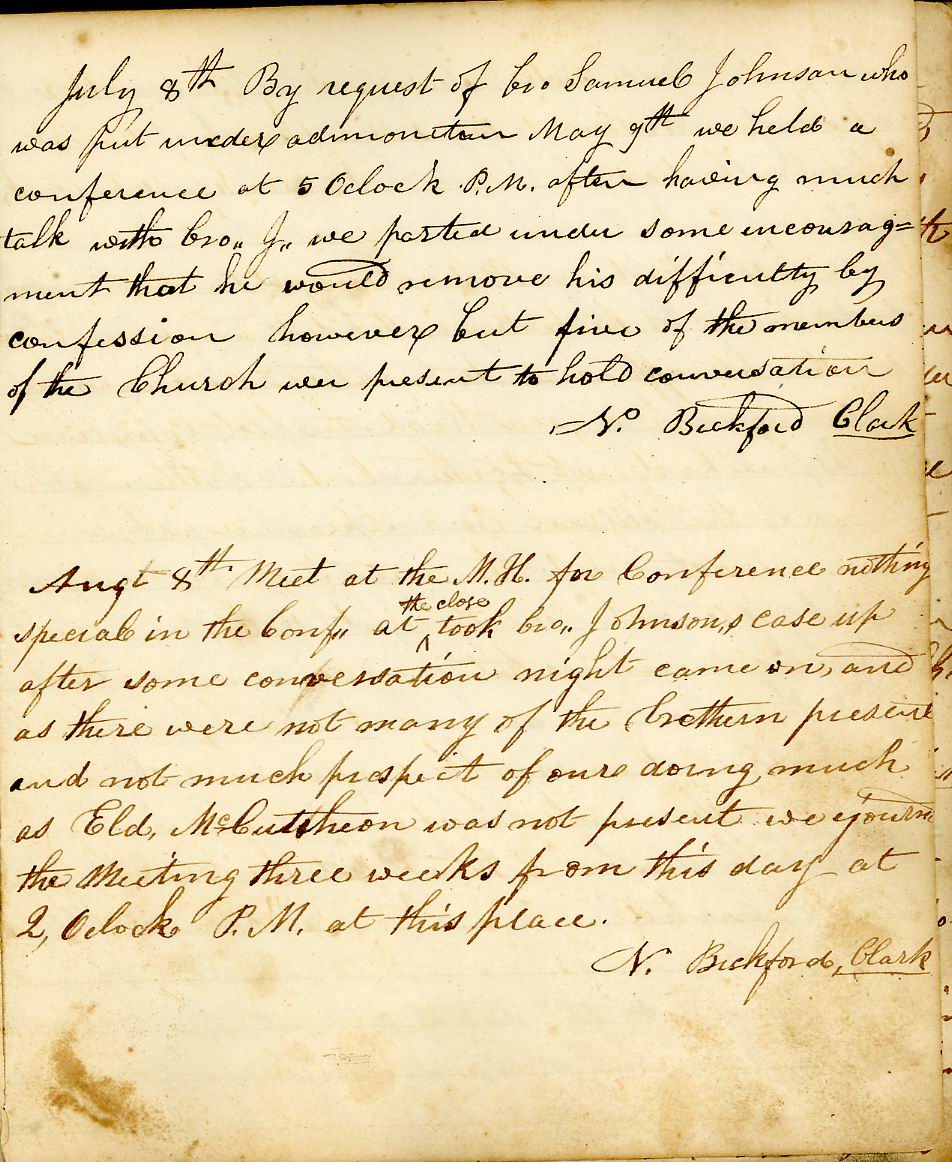 July 8th By request of bro Samuel Johnson who
was put under admonition May 9th we held a
conference at 5 Oclock P.M. after having much
talk with bro,, J,, we parted under some incourag=
ment that he would remove his difficulty by
confession however but five of the members
of the Church wer present to hold conversation
No Bickford Clark
Augt 8th Meet at the M.H. for Conference nothing
special in the Conf,, at the close took bro,, Johnson,s case up
after some conversation night came on, and
as there were not many of the brethern present
and not much prospect of oure doing much
as Eld, McCutcheon was not present we ajourn
the Meeting three weeks from this day at
2, Oclock P.M. at this place.
N. Bickford, Clark